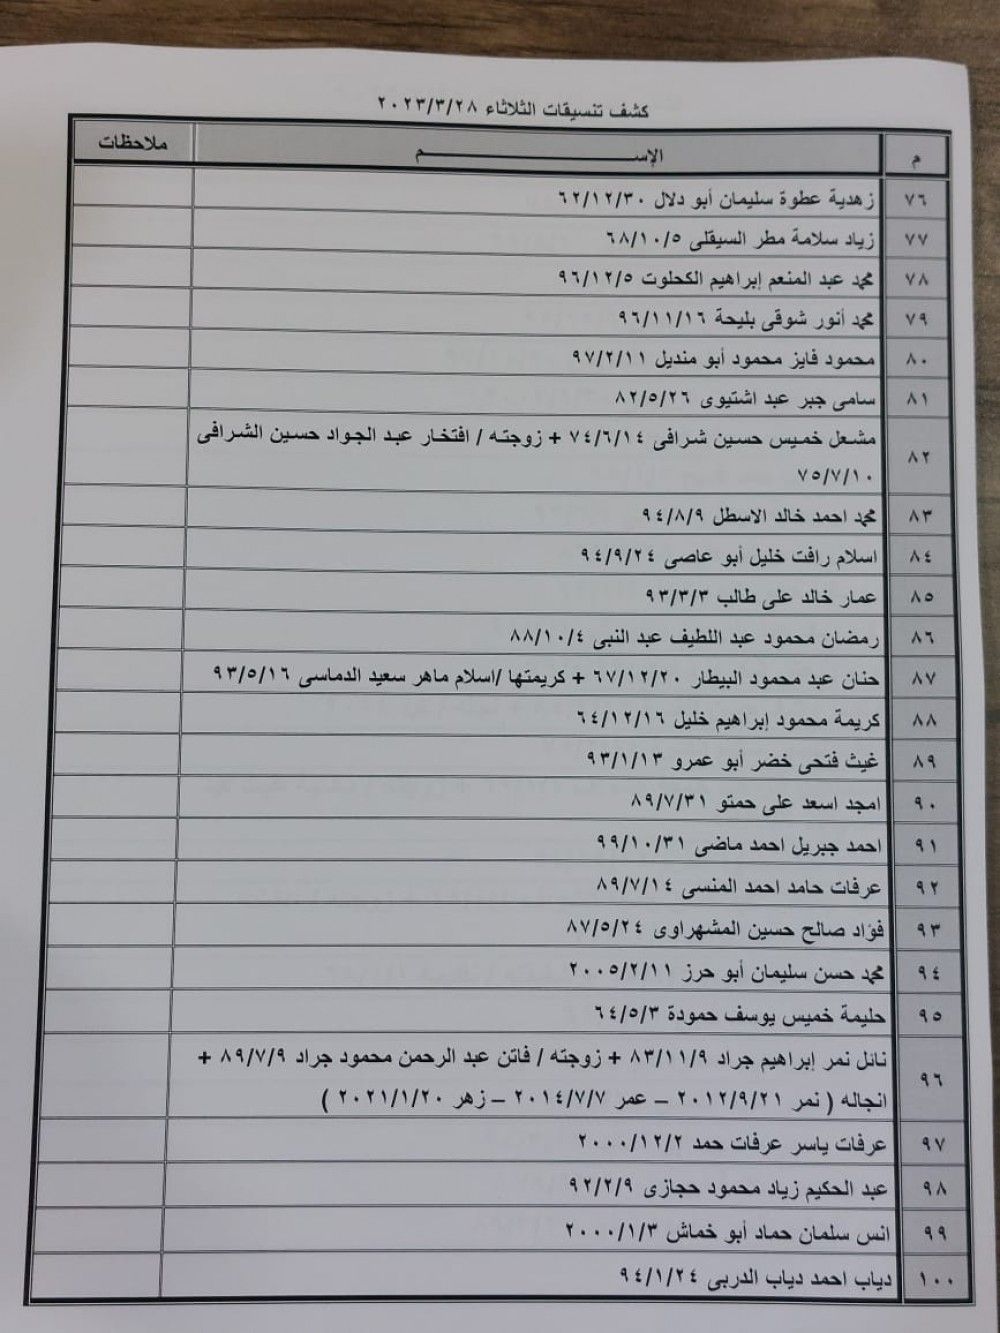 كشف تنسيقات الثلاثاء ٢٠٢٣/٣/٢٨
م الإســـــــــــــــم ملاحظات
٧٦ زهدية عطوة سليمان أبو دلال ٦٢/١٢/٣٠
٧٧ زياد سلامة مطر السيقلى ٦٨/١٠/٥
٧٨ محمد عبد المنعم إبراهيم الكحلوت ٩٦/١٢/٥
٧٩ محمد أنور شوقى بليحة ٩٦/١١/١٦
٨٠ محمود فايز محمود أبو منديل ٩٧/٢/١١
٨١ سامى جبر عبد اشتيوى ٨٢/٥/٢٦
٨٢ مشعل خميس حسين شرافى ٧٤/٦/١٤ + زوجته / افتخار عبد الجواد حسين الشرافى
٧٥/٧/١٠
٨٣ محمد احمد خالد الاسطل ٩٤/٨/٩
٨٤ اسلام رافت خليل أبو عاصى ٩٤/٩/٢٤
٨٥ عمار خالد على طالب ٩٣/٣/٣
٨٦ رمضان محمود عبد اللطيف عبد النبى ٨٨/١٠/٤
٨٧ حنان عبد محمود البيطار ٦٧/١٢/٢٠ + كريمتها /اسلام ماهر سعيد الدماسى ٩٣/٥/١٦
٨٨ كريمة محمود إبراهيم خليل ٦٤/١٢/١٦
٨٩ غيث فتحى خضر أبو عمرو ٩٣/١/١٣
٩٠ امجد اسعد على حمتو ٨٩/٧/٣١
٩١ احمد جبريل احمد ماضى ٩٩/١٠/٣١
٩٢ عرفات حامد احمد المنسى ٨٩/٧/١٤
٩٣ فؤاد صالح حسين المشهراوى ٨٧/٥/٢٤
٩٤ محمد حسن سليمان أبو حرز ٢٠٠٥/٢/١١
٩٥ حليمة خميس يوسف حمودة ٦٤/٥/٣
٩٦ نائل نمر إبراهيم جراد ٨٣/١١/٩ + زوجته / فاتن عبد الرحمن محمود جراد ٨٩/٧/٩ +
انجاله ( نمر ٢٠١٢/٩/٢١ – عمر ٢٠١٤/٧/٧ – زهر ٢٠٢١/١/٢٠ )
٩٧ عرفات ياسر عرفات حمد ٢٠٠٠/١٢/٢
٩٨ عبد الحكيم زياد محمود حجازى ٩٢/٢/٩
٩٩ انس سلمان حماد أبو خماش ٢٠٠٠/١/٣
١٠٠ دياب احمد دياب الدربى ٩٤/١/٢٤